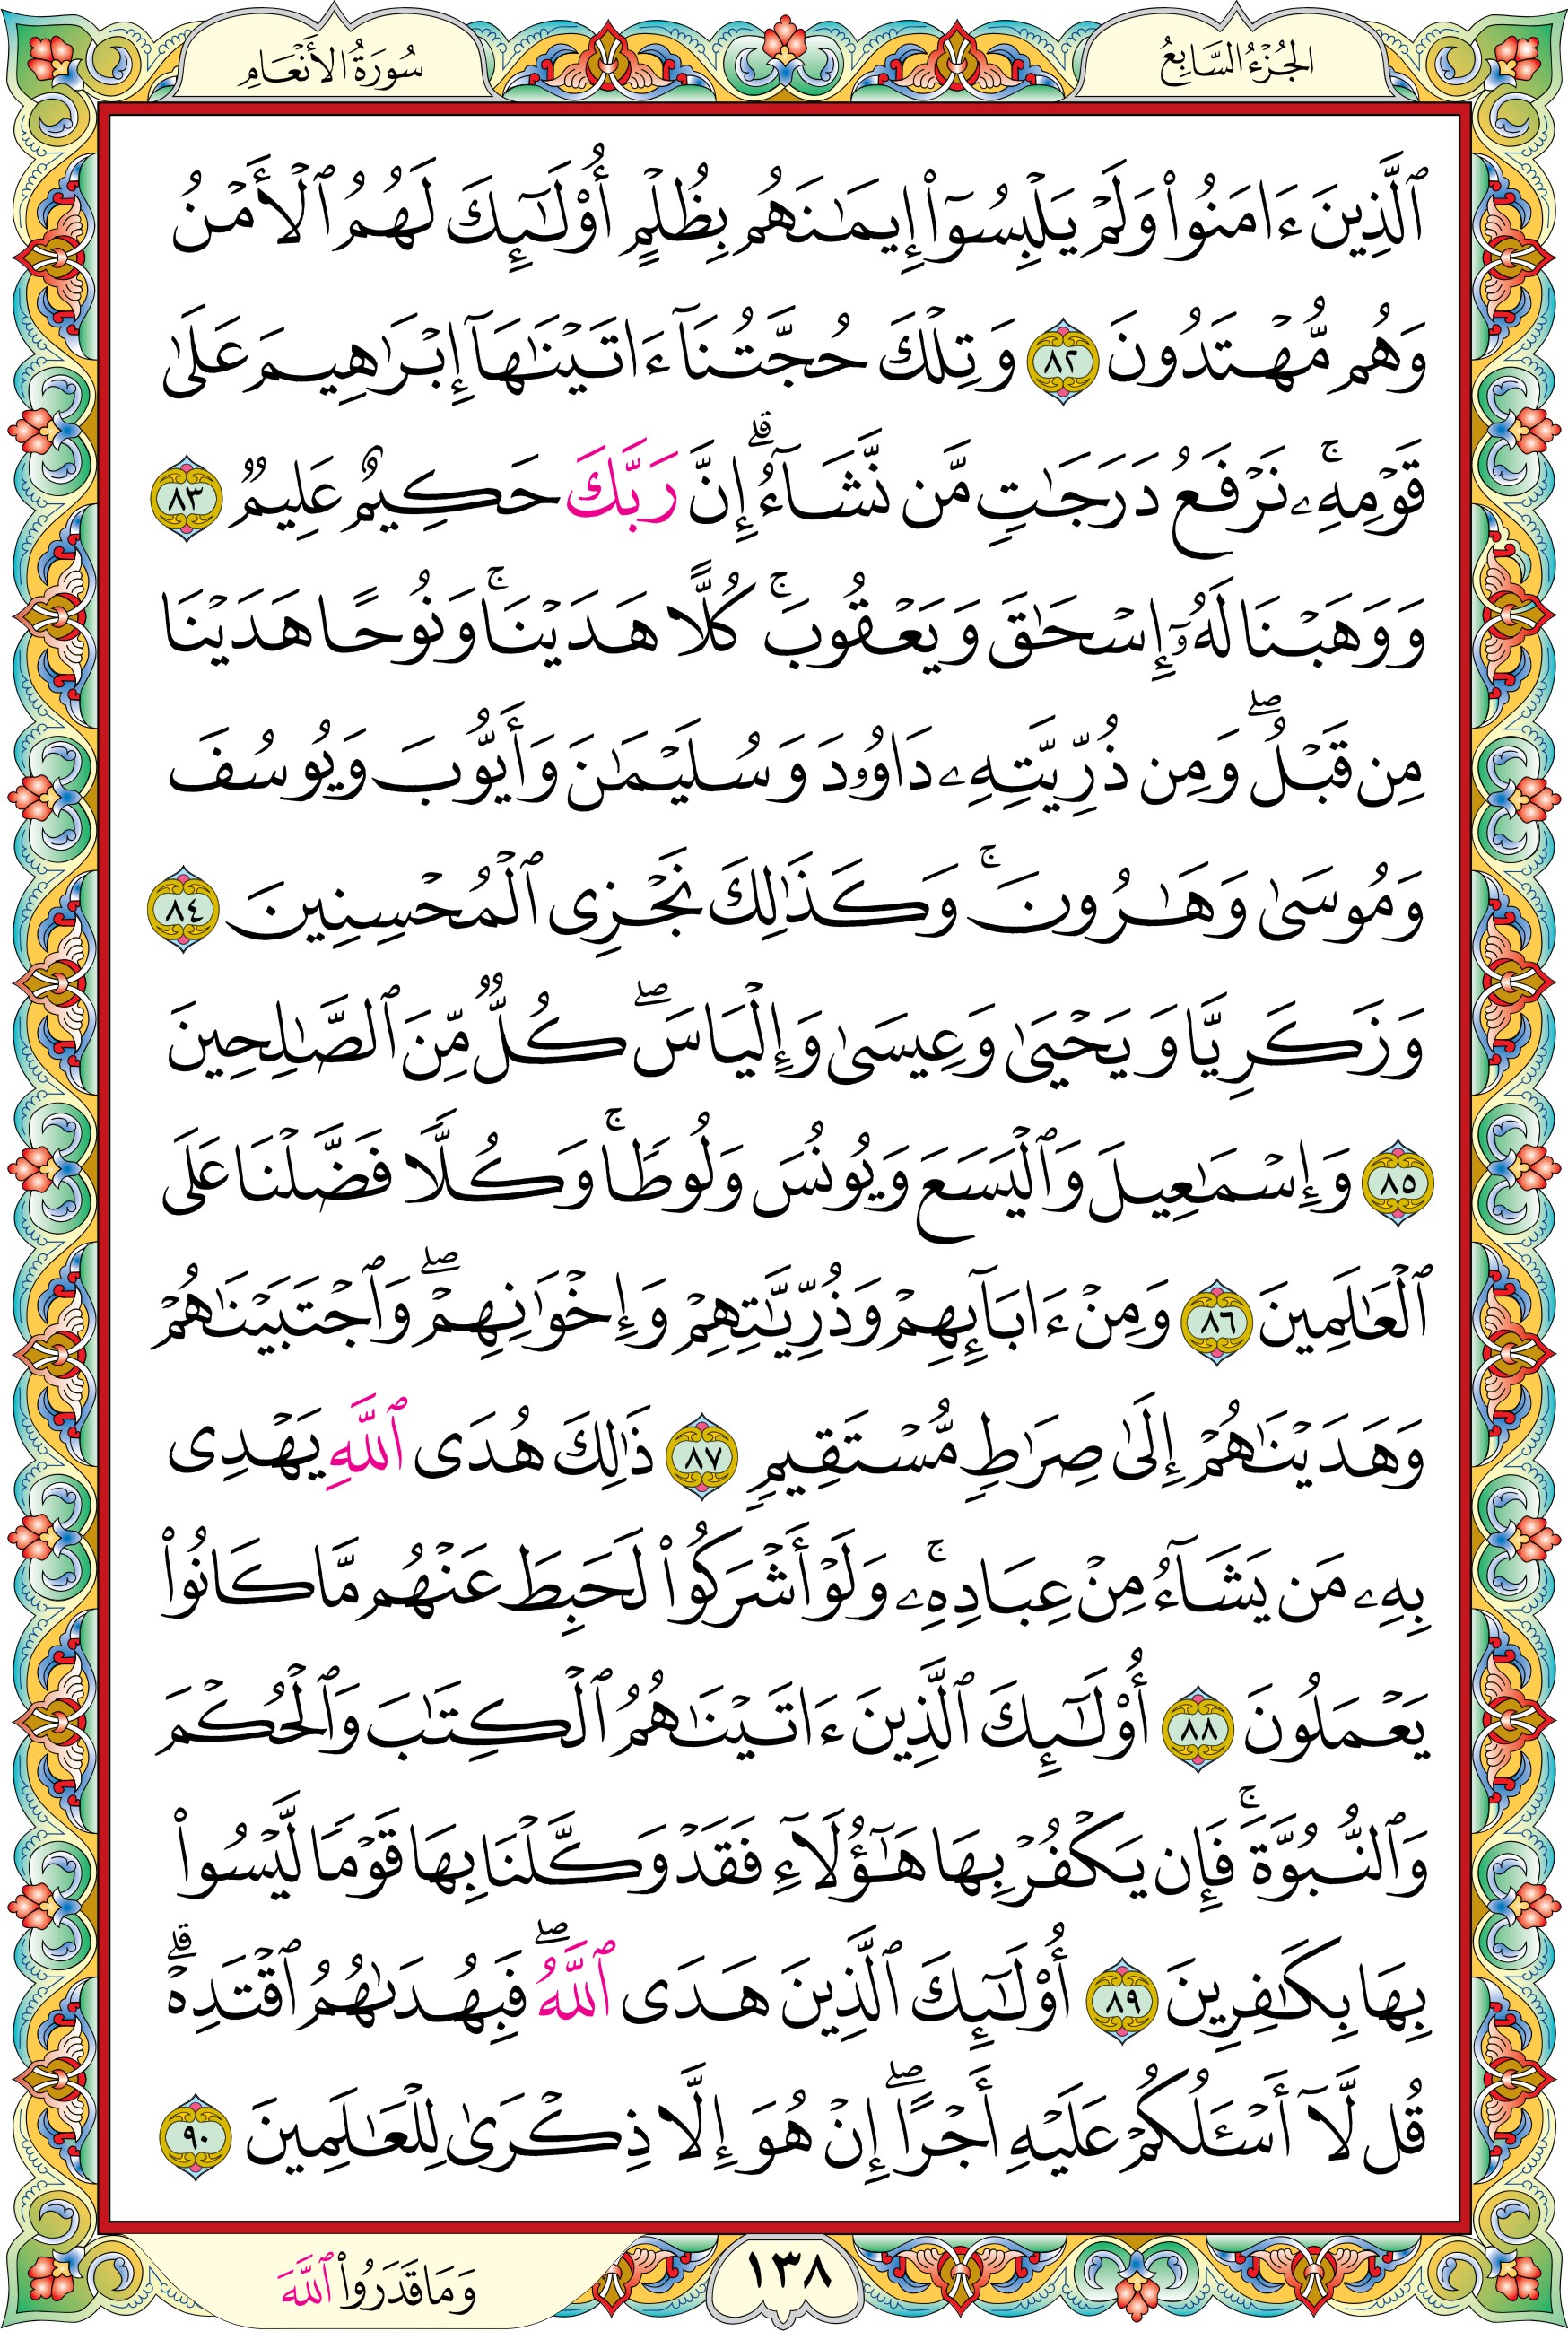 الجُزْءُ السَّابِعُ
سُورَةُ الأَنْعَامِ
ٱلَّذِينَ ءَامَنُوا۟ وَلَمْ يَلْبِسُوٓا۟ إِيمَـٰنَهُم بِظُلْمٍ أُو۟لَـٰٓئِكَ لَهُمُ ٱلْأَمْنُ
وَهُم مُّهْتَدُونَ ٨٢ وَتِلْكَ حُجَّتُنَآ ءَاتَيْنَـٰهَآ إِبْرَٰهِيمَ عَلَىٰ
قَوْمِهِۦ ۚ نَرْفَعُ دَرَجَـٰتٍ مَّن نَّشَآءُ ۗ إِنَّ رَبَّكَ حَكِيمٌ عَلِيمٌ ٨٣
وَوَهَبْنَا لَهُۥٓ إِسْحَـٰقَ وَيَعْقُوبَ ۚ كُلًّا هَدَيْنَا ۚ وَنُوحًا هَدَيْنَا
مِن قَبْلُ ۖ وَمِن ذُرِّيَّتِهِۦ دَاوُۥدَ وَسُلَيْمَـٰنَ وَأَيُّوبَ وَيُوسُفَ
وَمُوسَىٰ وَهَـٰرُونَ ۚ وَكَذَٰلِكَ نَجْزِى ٱلْمُحْسِنِينَ ٨٤
وَزَكَرِيَّا وَيَحْيَىٰ وَعِيسَىٰ وَإِلْيَاسَ ۖ كُلٌّ مِّنَ ٱلصَّـٰلِحِينَ
٨٥ وَإِسْمَـٰعِيلَ وَٱلْيَسَعَ وَيُونُسَ وَلُوطًا ۚ وَكُلًّا فَضَّلْنَا عَلَى
ٱلْعَـٰلَمِينَ ٨٦ وَمِنْ ءَابَآئِهِمْ وَذُرِّيَّـٰتِهِمْ وَإِخْوَٰنِهِمْ ۖ وَٱجْتَبَيْنَـٰهُمْ
وَهَدَيْنَـٰهُمْ إِلَىٰ صِرَٰطٍ مُّسْتَقِيمٍ ٨٧ ذَٰلِكَ هُدَى ٱللَّهِ يَهْدِى
بِهِۦ مَن يَشَآءُ مِنْ عِبَادِهِۦ ۚ وَلَوْ أَشْرَكُوا۟ لَحَبِطَ عَنْهُم مَّا كَانُوا۟
يَعْمَلُونَ ٨٨ أُو۟لَـٰٓئِكَ ٱلَّذِينَ ءَاتَيْنَـٰهُمُ ٱلْكِتَـٰبَ وَٱلْحُكْمَ
وَٱلنُّبُوَّةَ ۚ فَإِن يَكْفُرْ بِهَا هَـٰٓؤُلَآءِ فَقَدْ وَكَّلْنَا بِهَا قَوْمًا لَّيْسُوا۟
بِهَا بِكَـٰفِرِينَ ٨٩ أُو۟لَـٰٓئِكَ ٱلَّذِينَ هَدَى ٱللَّهُ ۖ فَبِهُدَىٰهُمُ ٱقْتَدِهْ ۗ
قُل لَّآ أَسْـَٔلُكُمْ عَلَيْهِ أَجْرًا ۖ إِنْ هُوَ إِلَّا ذِكْرَىٰ لِلْعَـٰلَمِينَ ٩٠
١٣٨
وَمَا قَدَرُوا۟ ٱللَّهَ